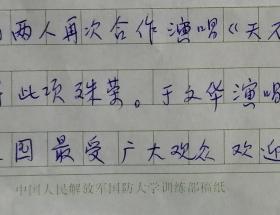 两人再次合作演唱《天
此项殊荣。于文华演唱
国最受广大观众欢迎
中国人民解放军国防大学训练部稿纸